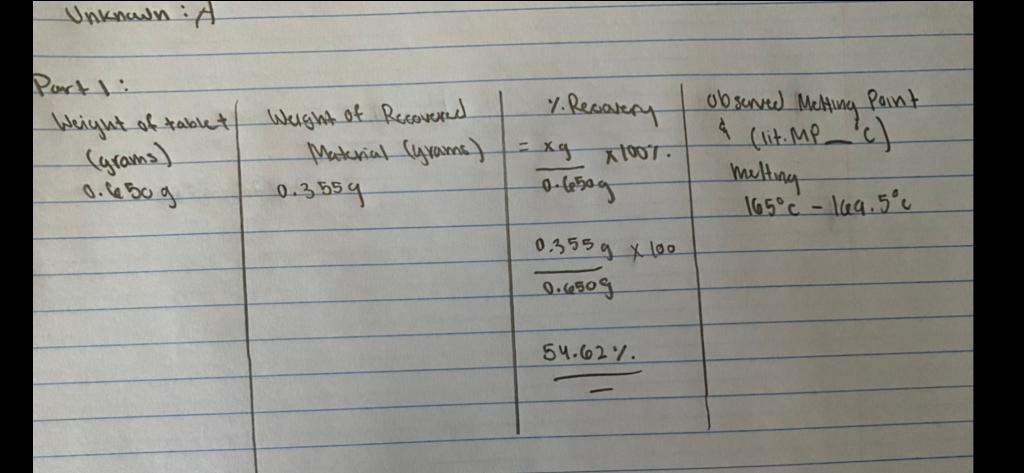 Unknown : A
Part 1 :
Weight of tablet (grams)
0.650 g
Weight of Recovered Material (grams)
0.355g
% Recovery
= xg / 0.650g x 100%.
0.355 g / 0.650g x 100
54.62 %.
Observed Melting Point
& (lit. MP __ °C)
melting
165°C - 169.5°C